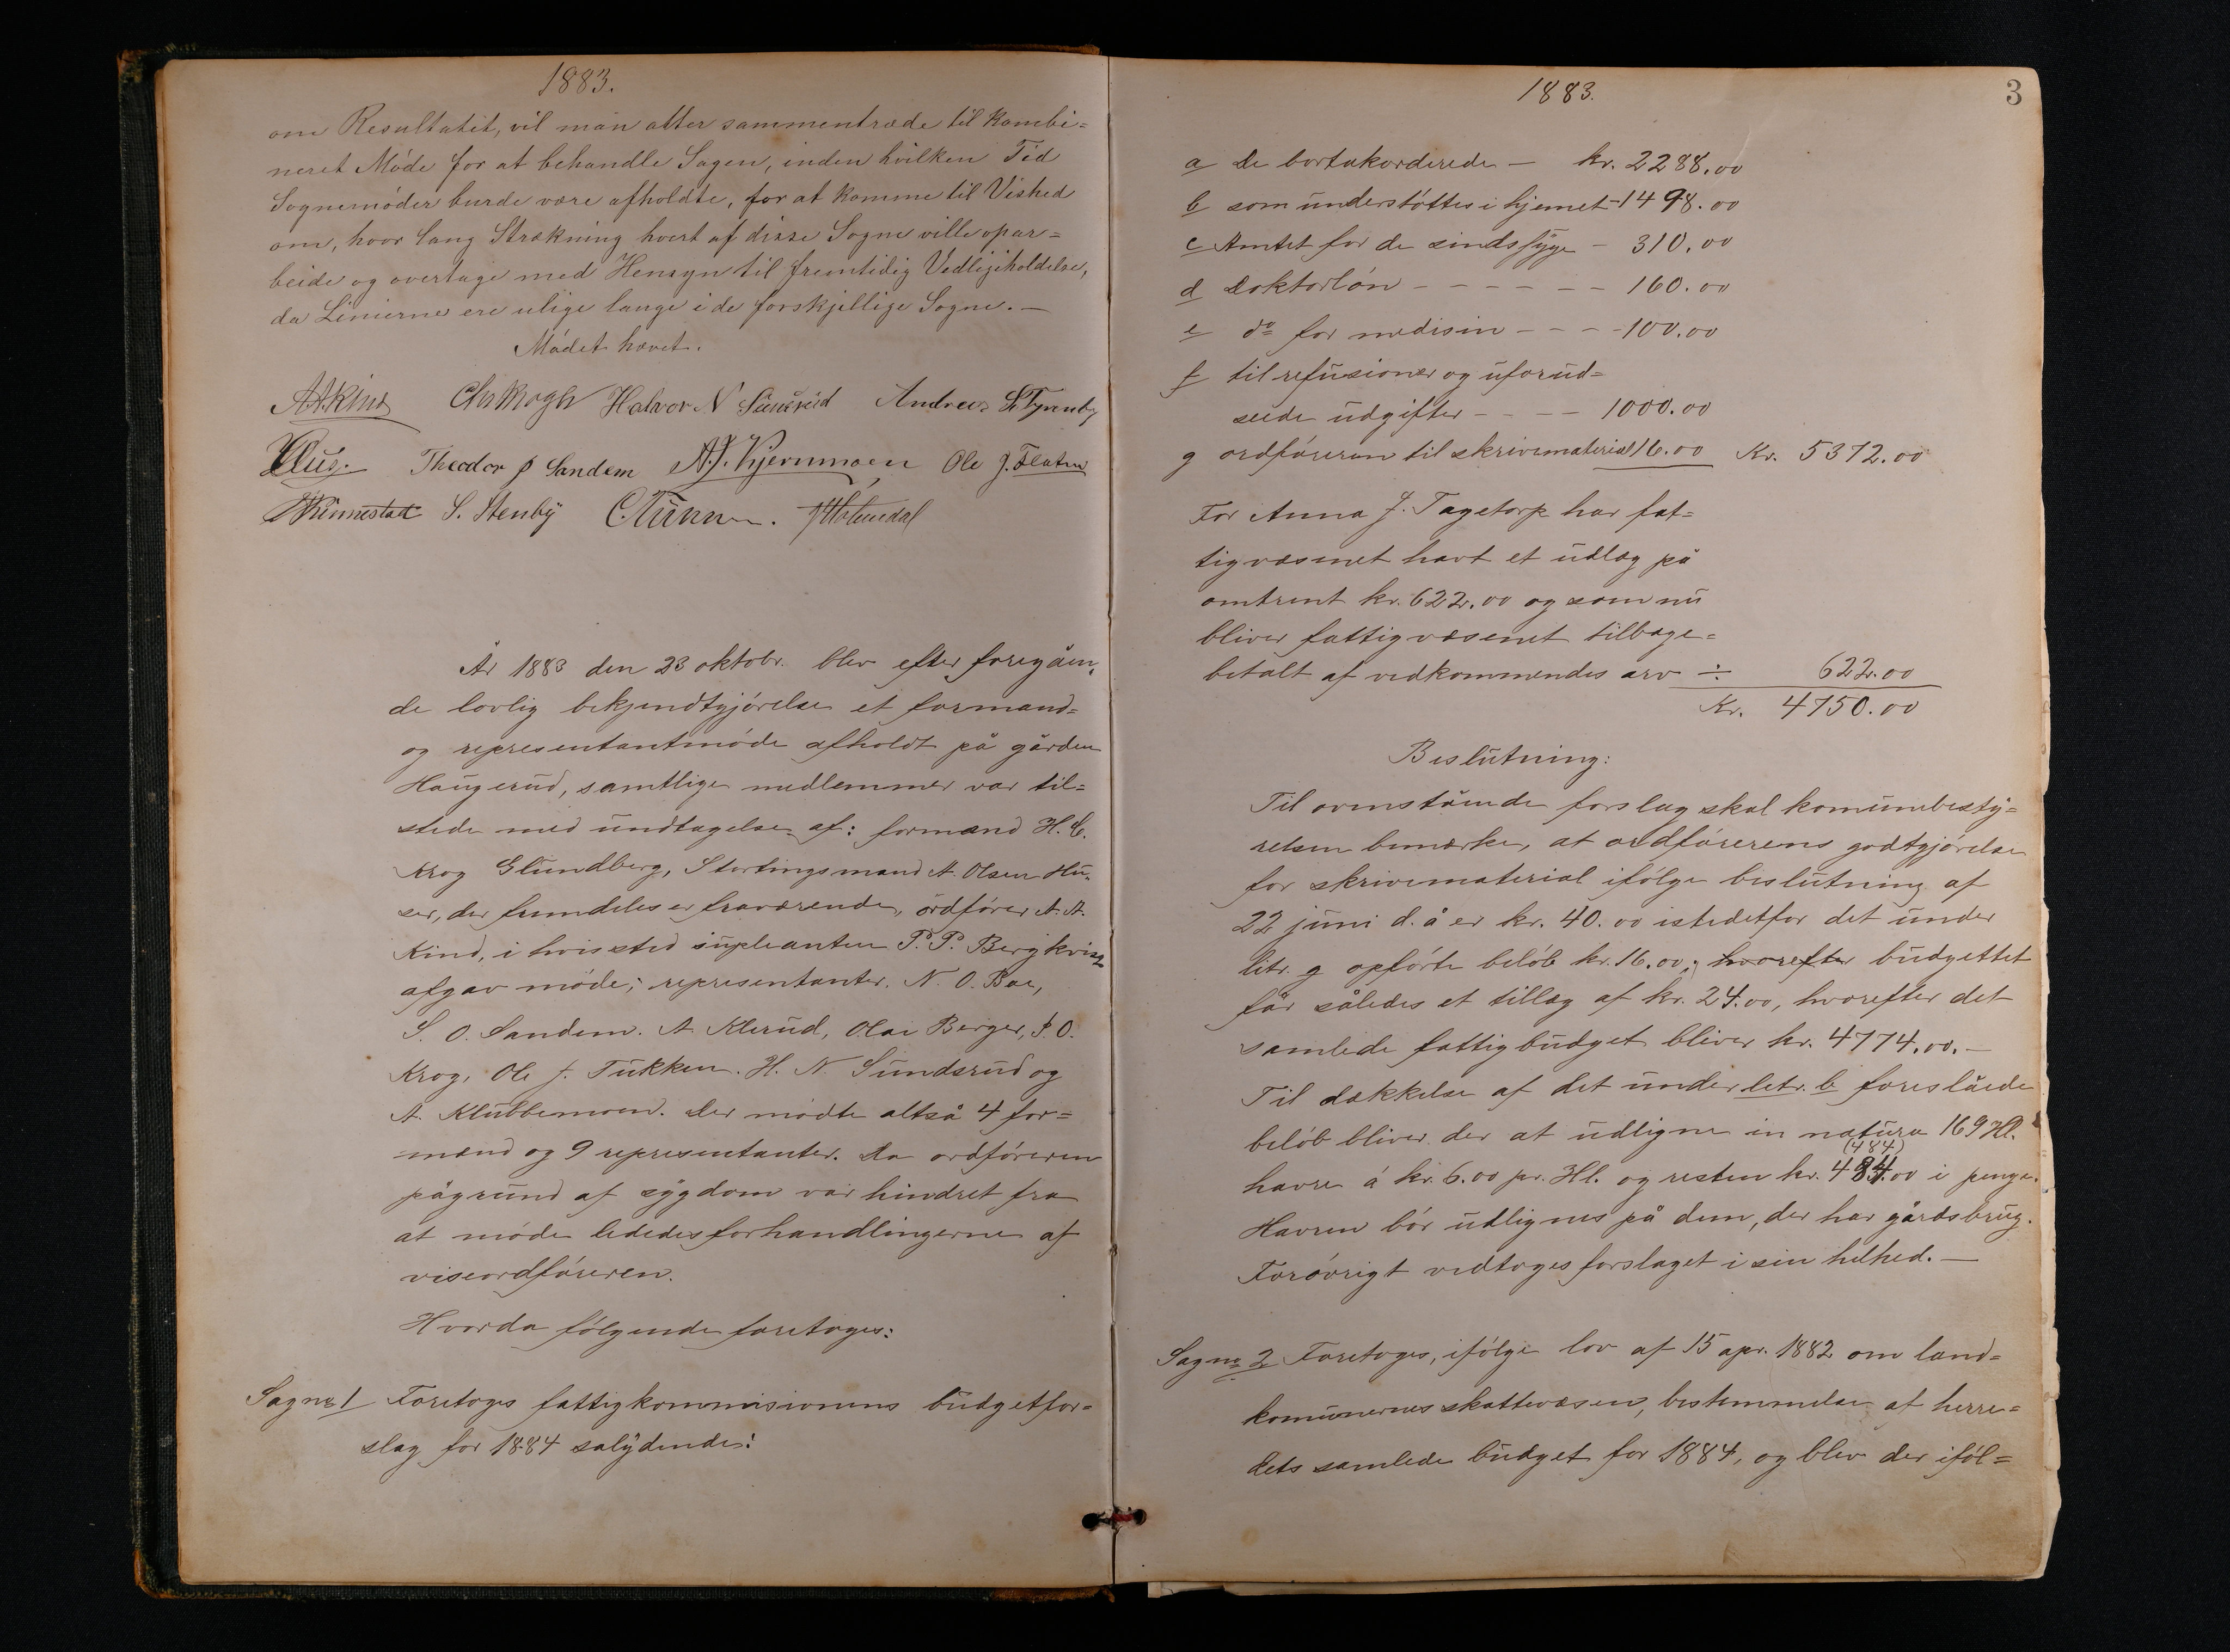 1883.
om Resultatet, vil man atter sammentræde til kombi=
neret Møde for at behandle Sagen, inden hvilken Tid
Sognemøder burde være afholdte, for at komme til Vished
om, hvor lang Strækning hvert af disse Sogne ville opar=
beide og overtage med Hensyn til fremtidig Vedligeholdelse,
da Linierne ere ulige lange i de forskjellige Sogne. —
Mødet hævet.
A.A. Kind Halvor N Sundsrud Andreas
Theodor P Sandem A. J. Kjernmoen Ole J. Flaten
S. Stenby
År 1883 den 23 oktobr. blev efter foregåen=
de lovlig bekjendtgjørelse et formand=
og representantmøde afholdt på gården
Haugerud, samtlige medlemmer var til=
stede med undtagelse af: formænd H. C.
Krog Glundberg, Stortingsmand A. Olsen Hu=
ser, der fremdeles er fraværende, ordfører A. A.
Kind, i hvis sted supleanten P. P. Bergkvist
afgav møde; representanter. N. O. Boe,
S. O. Sandem. A. Klerud, Olai Berger, P. O.
Krog, Ole J. Tukken. H. N. Sundsrud og
A. Klubbemoen. Der mødte altså 4 for=
mænd og 9 representanter. Da ordføreren
pågrund af sygdom var hindret fra
at møde lededes forhandlingerne af
viseordføreren.
Hvorda følgende foretoges:
Sag no 1 Foretoges fattigkommisionens budgetfor=
slag for 1884 salydende:
1883.
3
a De bortakorderede — kr. 2288.00
b som understøttes i hjemet - 1498.00
c Amtet for de sindssyge - 310.00
d Doktorløn - - - - - - 160.00
e do for medisin - - - - 100.00
f til refusioner og uforud=
seede udgifter - - - - 1000.00
g ordføreren til skrivematerial 16.00 Kr. 5372.00
For Anna J. Tagetorp har fat=
tigvæsenet havt et udlæg på
omtrent kr. 622.00 og som nu
bliver fattigvæsenet tilbage=
betalt af vedkommendes arv ÷ 622.00
Kr. 4750.00
Beslutning:
Til ovenstående forslag skal komunebesty=
relsen bemærke, at ordførerens godtgjørelse
for skrivematerial ifølge beslutning af
22 juni d. å er kr. 40.00 istedetfor det under
litr. g opførte beløb kr. 16.00; hvorefter budgettet
får således et tillæg af kr. 24.00, hvorefter det
samlede fattigbudget bliver kr. 4774.00. —
Til dækkelse af det under letr. b foreslåede
beløb bliver der at udligne in natura 169 Hl.
(484)
havre á kr. 6.00 pr. Hl. og resten kr. 484.00 i penge.
Havren bør udlignes på dem, der har gårdsbrug.
Forøvrigt vedtoges forslaget i sin helhed. —
Sag no 2 Foretoges, ifølge lov af 15 apr. 1882 om land=
komunernes skattevæsen, bestemmelse af herre=
dets samlede budget for 1884, og blev der iføl=